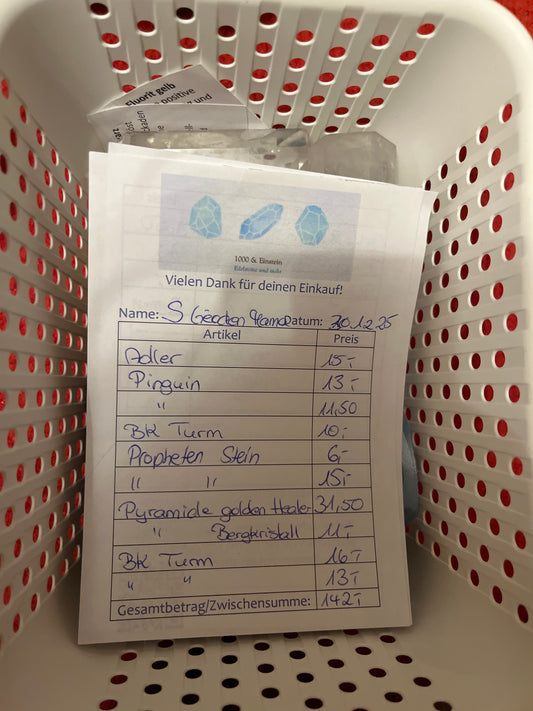 Fluorit gelb
positive
und
1000 & Einstein
Edelsteine und mehr
Vielen Dank für deinen Einkauf!
Name: S Datum: 30.12.25
Artikel Preis
Adler 15,-
Pinguin 13,-
" 11,50
BK Turm 10,-
Propheten Stein 6,-
" " 15,-
Pyramide golden Healer 31,50
" Bergkristall 11,-
BK Turm 16,-
" " 13,-
Gesamtbetrag/Zwischensumme: 142,-